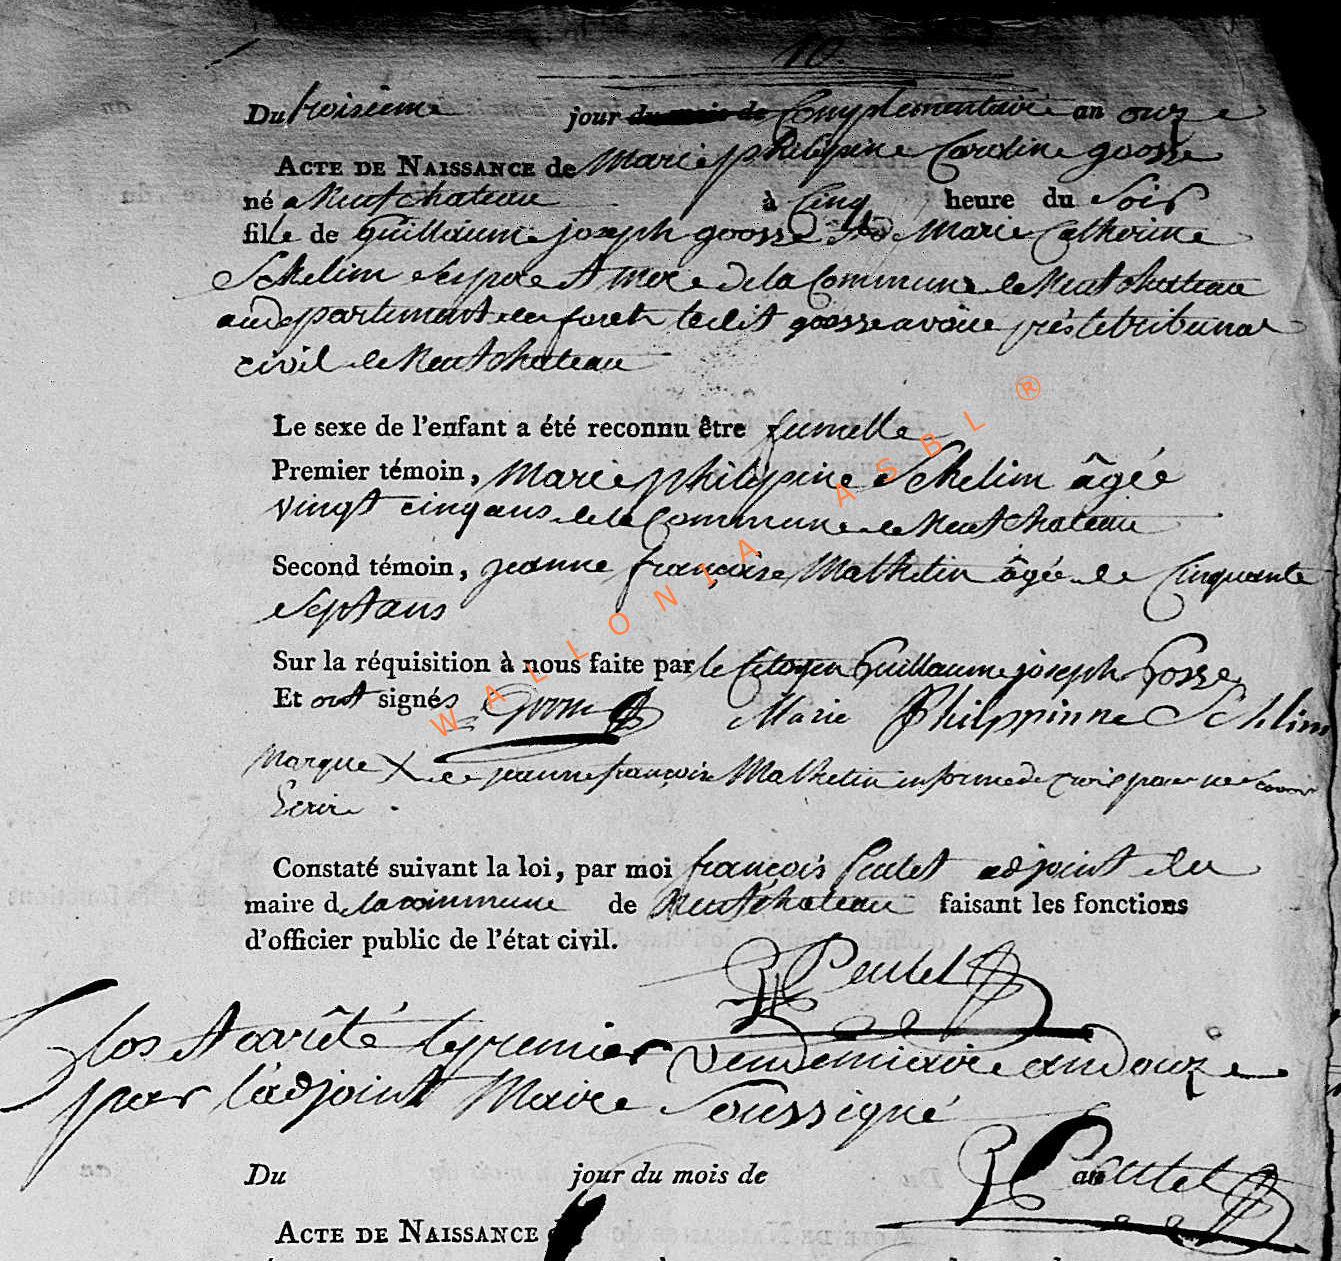 10
Du troisieme jour du mois de Complementaire an onze
ACTE DE NAISSANCE de Marie philipine Caroline goosse
né a Neufchateau à Cinq heure du Soir
fille de Guillaume joseph goosse & de Marie Catherine
Schelim pere et mere de la Commune de Neufchateau
au departement des forets ledit goosse avoüe près le tribunal
civil de Neufchateau
Le sexe de l'enfant a été reconnu être fumelle
Premier témoin, Marie philipine Schelim âgée
vingt cinq ans de la Commune de Neufchateau
Second témoin, jeanne françoise Mathelin âgée de Cinquante
Sept ans
Sur la réquisition à nous faite par le Citoyen Guillaume joseph Gosse
Et ont signés Marie Philppinne Schlim
Marque X de jeanne françoise Mathelin en forme de croix pour ne savoir
Ecrire .
Constaté suivant la loi, par moi françois Peutet adjoint du
maire de la commune de Neufchateau faisant les fonctions
d'officier public de l'état civil.
Peutet
Clos et arrêté le premier vendemiaire an Douze
par l'adjoint Maire Soussigné
Peutet
Du jour du mois de an
ACTE DE NAISSANCE
WALLONIA ASBL ®